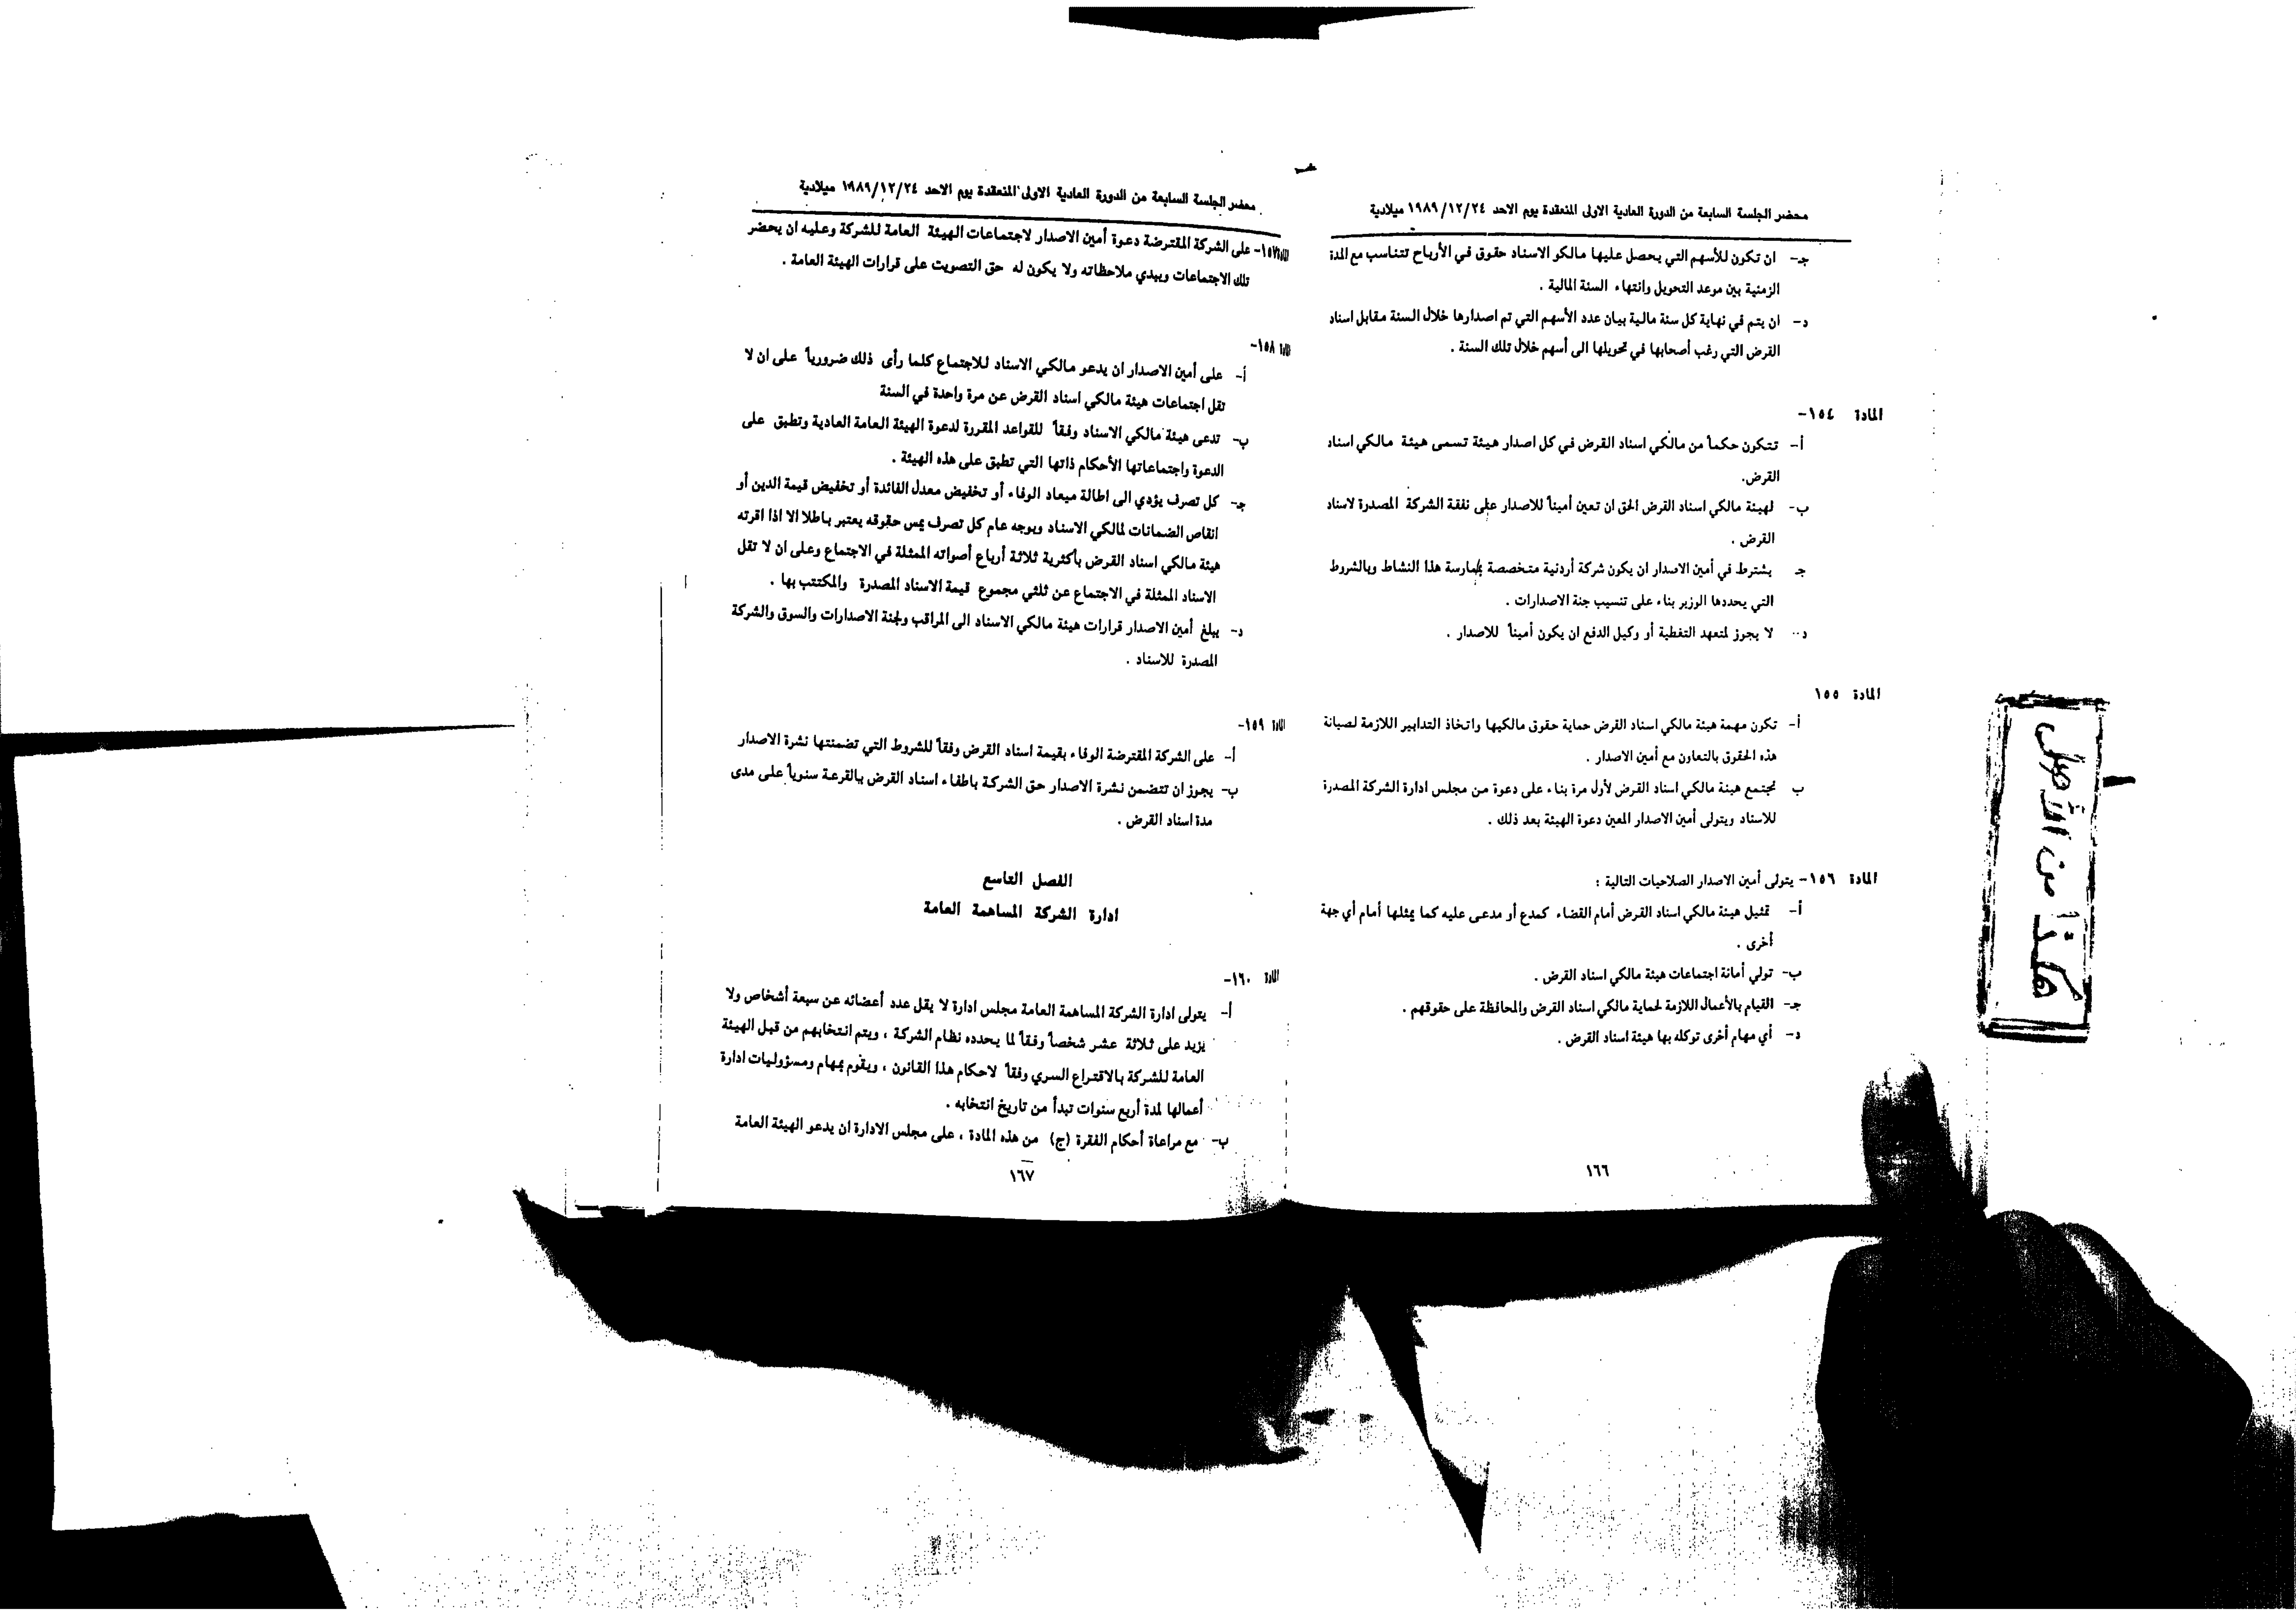 محضر الجلسة السابعة من الدورة العادية الاولى المنعقدة يوم الاحد ١٩٨٩/١٢/٢٤ ميلادية
جـ- ان تكون للأسهم التي يحصل عليها مالكو الاسناد حقوق في الأرباح تتناسب مع المدة
الزمنية بين موعد التحويل وانتهاء السنة المالية .
د- ان يتم في نهاية كل سنة مالية بيان عدد الأسهم التي تم اصدارها خلال السنة مقابل اسناد
القرض التي رغب أصحابها في تحويلها الى أسهم خلال تلك السنة .
المادة ١٥٤-
أ- تتكون حكماً من مالكي اسناد القرض في كل اصدار هيئة تسمى هيئة مالكي اسناد
القرض.
ب- لهيئة مالكي اسناد القرض الحق ان تعين أميناً للاصدار على نفقة الشركة المصدرة لاسناد
القرض .
جـ يشترط في أمين الاصدار ان يكون شركة أردنية متخصصة بممارسة هذا النشاط وبالشروط
التي يحددها الوزير بناء على تنسيب جنة الاصدارات .
د- لا يجوز لمتعهد التغطية أو وكيل الدفع ان يكون أميناً للاصدار .
المادة ١٥٥
أ- تكون مهمة هيئة مالكي اسناد القرض حماية حقوق مالكيها واتخاذ التدابير اللازمة لصيانة
هذه الحقوق بالتعاون مع أمين الاصدار .
ب تجتمع هيئة مالكي اسناد القرض لأول مرة بناء على دعوة من مجلس ادارة الشركة المصدرة
للاسناد ويتولى أمين الاصدار المعين دعوة الهيئة بعد ذلك .
المادة ١٥٦- يتولى أمين الاصدار الصلاحيات التالية :
أ- تمثيل هيئة مالكي اسناد القرض أمام القضاء كمدع أو مدعى عليه كما يمثلها أمام أي جهة
أخرى .
ب- تولي أمانة اجتماعات هيئة مالكي اسناد القرض .
جـ- القيام بالأعمال اللازمة لحماية مالكي اسناد القرض والمحافظة على حقوقهم .
د- أي مهام أخرى توكله بها هيئة اسناد القرض .
١٦٦
محضر الجلسة السابعة من الدورة العادية الاولى المنعقدة يوم الاحد ١٩٨٩/١٢/٢٤ ميلادية
المادة ١٥٧- على الشركة المقترضة دعوة أمين الاصدار لاجتماعات الهيئة العامة للشركة وعليه ان يحضر
تلك الاجتماعات ويبدي ملاحظاته ولا يكون له حق التصويت على قرارات الهيئة العامة .
المادة ١٥٨-
أ- على أمين الاصدار ان يدعو مالكي الاسناد للاجتماع كلما رأى ذلك ضرورياً على ان لا
تقل اجتماعات هيئة مالكي اسناد القرض عن مرة واحدة في السنة
ب- تدعى هيئة مالكي الاسناد وفقاً للقواعد المقررة لدعوة الهيئة العامة العادية وتطبق على
الدعوة واجتماعاتها الأحكام ذاتها التي تطبق على هذه الهيئة .
جـ- كل تصرف يؤدي الى اطالة ميعاد الوفاء أو تخفيض معدل الفائدة أو تخفيض قيمة الدين أو
انقاص الضمانات لمالكي الاسناد وبوجه عام كل تصرف يمس حقوقه يعتبر باطلا الا اذا اقرته
هيئة مالكي اسناد القرض بأكثرية ثلاثة أرباع أصواته الممثلة في الاجتماع وعلى ان لا تقل
الاسناد الممثلة في الاجتماع عن ثلثي مجموع قيمة الاسناد المصدرة والمكتتب بها .
د- يبلغ أمين الاصدار قرارات هيئة مالكي الاسناد الى المراقب ولجنة الاصدارات والسوق والشركة
المصدرة للاسناد .
المادة ١٥٩-
أ- على الشركة المقترضة الوفاء بقيمة اسناد القرض وفقاً للشروط التي تضمنتها نشرة الاصدار
ب- يجوز ان تتضمن نشرة الاصدار حق الشركة باطفاء اسناد القرض بالقرعة سنوياً على مدى
مدة اسناد القرض .
الفصل التاسع
ادارة الشركة المساهمة العامة
المادة ١٦٠-
أ- يتولى ادارة الشركة المساهمة العامة مجلس ادارة لا يقل عدد أعضائه عن سبعة أشخاص ولا
يزيد على ثلاثة عشر شخصاً وفقاً لما يحدده نظام الشركة ، ويتم انتخابهم من قبل الهيئة
العامة للشركة بالاقتراع السري وفقاً لاحكام هذا القانون ، ويقوم بمهام ومسؤوليات ادارة
أعمالها لمدة أربع سنوات تبدأ من تاريخ انتخابه .
ب- مع مراعاة أحكام الفقرة (ج) من هذه المادة ، على مجلس الادارة ان يدعو الهيئة العامة
١٦٧
هكذا من الأصل